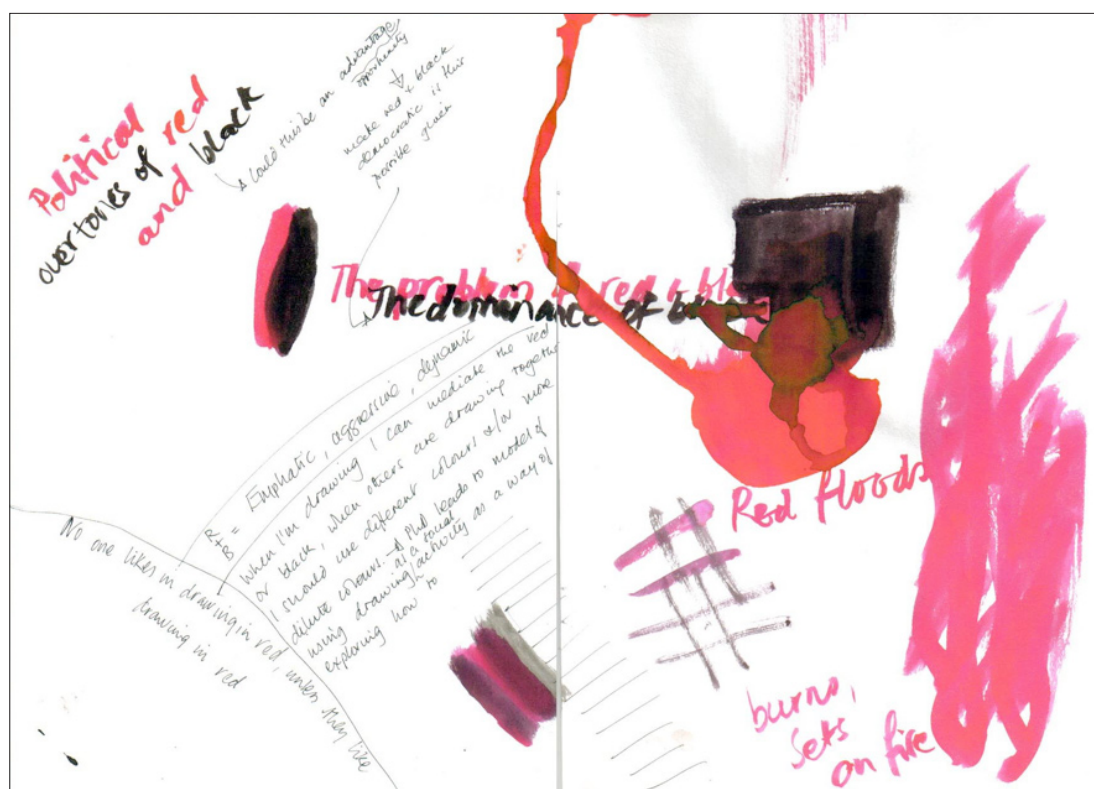 Political
overtones of red
and black
Could this be an advantage
opportunity
make red + black
democratic is this
possible given
The problem of red & bla
The dominance of
R+B = Emphatic, aggressive, dynamic
When I'm drawing I can mediate the red
or black, when others are drawing together
I should use different colours &/or more
dilute colours. → PhD leads to model of
as a social
using drawing/activity as a way of
exploring how to
No one likes in drawing in red, unless they like
drawing in red
Red floods
burns,
sets
on fire